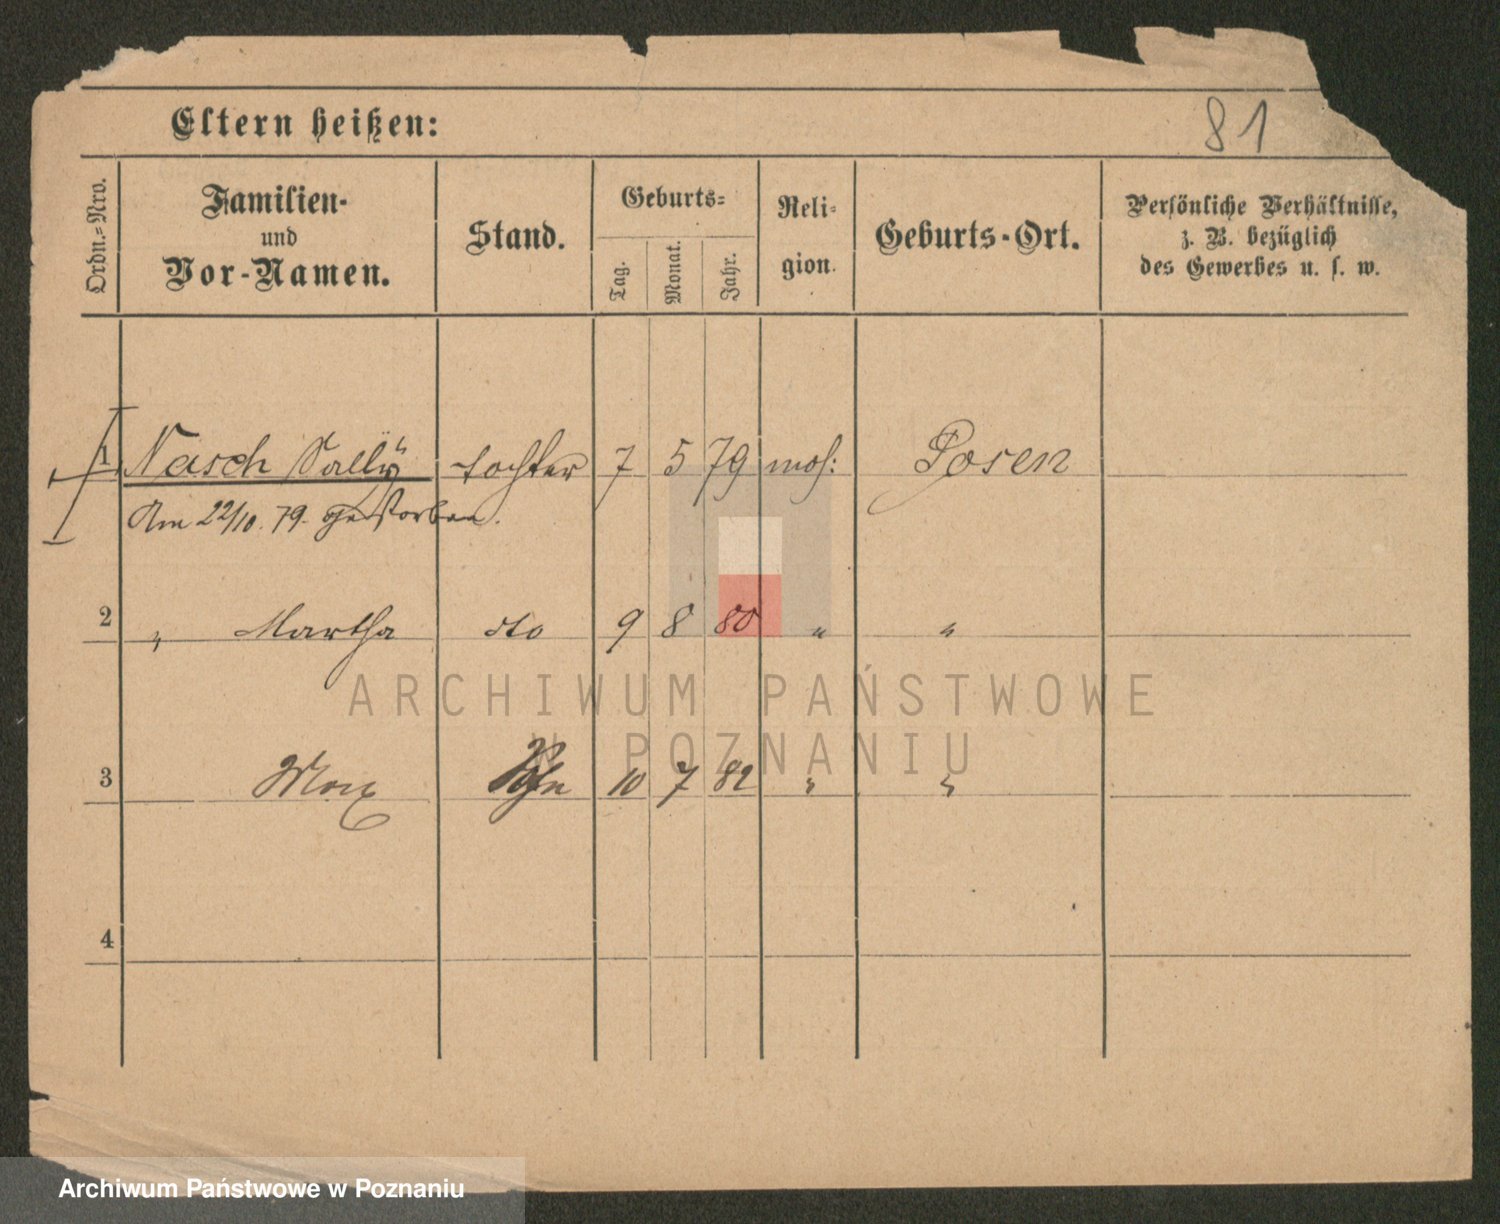 Eltern heißen:
81
Ordn.-Nro.
Familien-
und
Vor-Namen.
Stand.
Geburts-
Tag.
Monat.
Jahr.
Reli-
gion.
Geburts-Ort.
Persönliche Verhältnisse,
z. B. bezüglich
des Gewerbes u. s. w.
1 Nasch Sally tochter 7 5 79 mos: Posen
Am 22/10. 79. gestorben.
2 " Martha dto 9 8 80 " "
3 Max Sohn 10 7 82 " "
4
ARCHIWUM PAŃSTWOWE
W POZNANIU
Archiwum Państwowe w Poznaniu